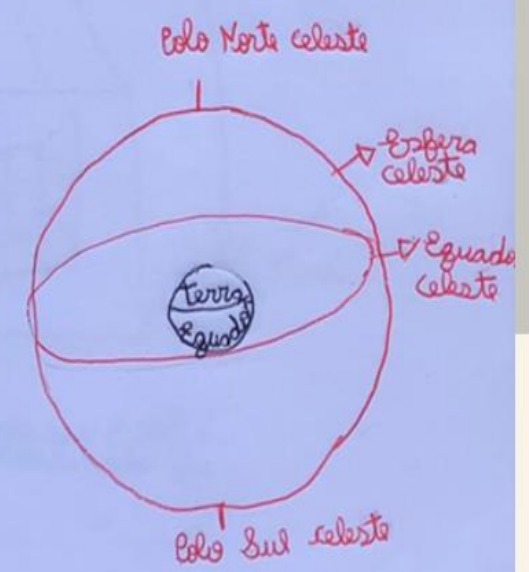 Polo Norte celeste
Esfera
celeste
Equado
celeste
Terra
Equador
Polo Sul celeste